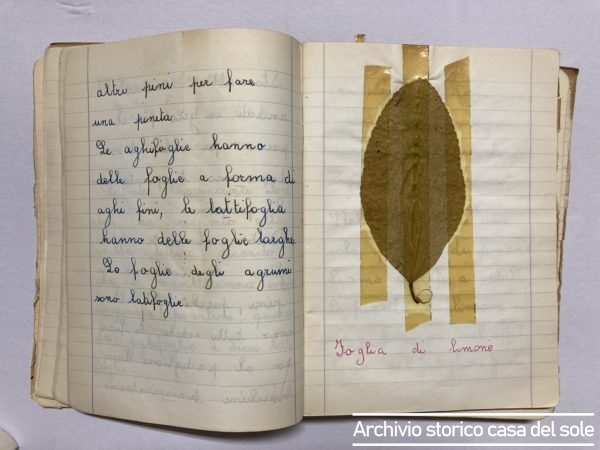 altri pini per fare
una pineta
Le aghifoglie hanno
delle foglie a forma di
aghi fini, le lattifoglia
hanno delle foglie larghe
Le foglie degli agrumi
sono latifoglie
Foglia di limone
Archivio storico casa del sole